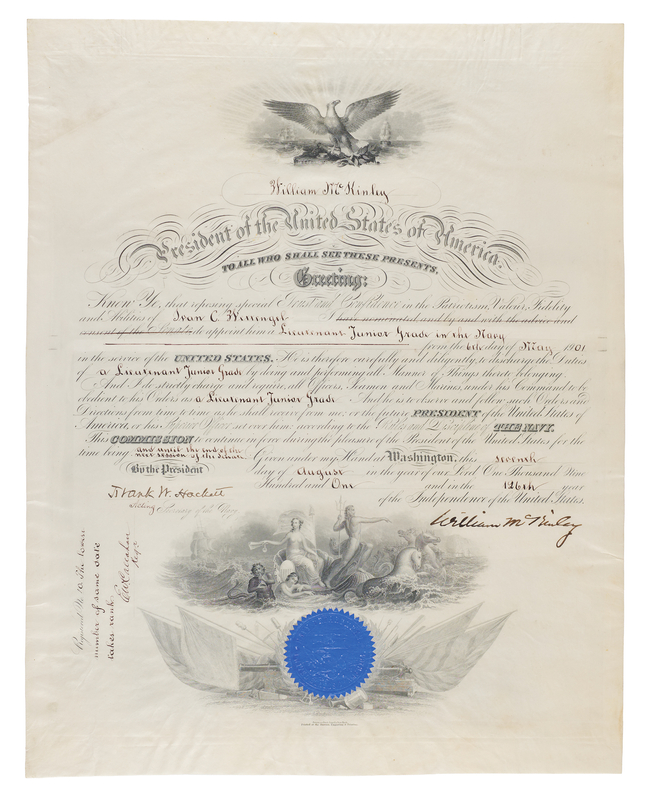 William McKinley
President of the United States of America.
TO ALL WHO SHALL SEE THESE PRESENTS,
Greeting:
Know Ye, that reposing special Trust and Confidence in the Patriotism, Valour, Fidelity
and Abilities of Ivan C. I have nominated and by and with the advice and
consent of the Senate do appoint him a Lieutenant Junior Grade in the Navy
from the 6th day of May 1901
in the service of the UNITED STATES. He is therefore carefully and diligently to discharge the Duties
of a Lieutenant Junior Grade by doing and performing all Manner of Things thereto belonging.
And I do strictly charge and require all Officers, Seamen and Marines under his Command to be
obedient to his Orders as a Lieutenant Junior Grade And he is to observe and follow such Orders and
Directions from time to time as he shall receive from me, or the future PRESIDENT of the United States of
America, or his Superior Officer set over him, according to the Rules and Discipline of THE NAVY.
This COMMISSION to continue in force during the pleasure of the President of the United States for the
time being and until the end of the
next session of the Senate. Given under my Hand at Washington, this seventh
By the President day of August in the year of our Lord One Thousand Nine
Hundred and One and in the 126th year
of the Independence of the United States.
Frank W. Hackett
Acting Secretary of the Navy.
William McKinley
number of same date
takes rank